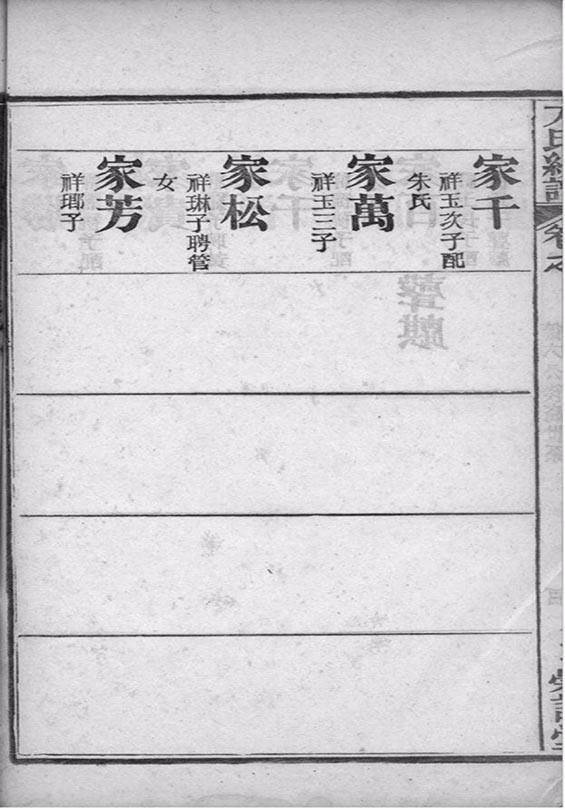 家千
祥玉次子配
朱氏
家萬
祥玉三子
家松
祥琳子聘管
女
家芳
祥瑯子